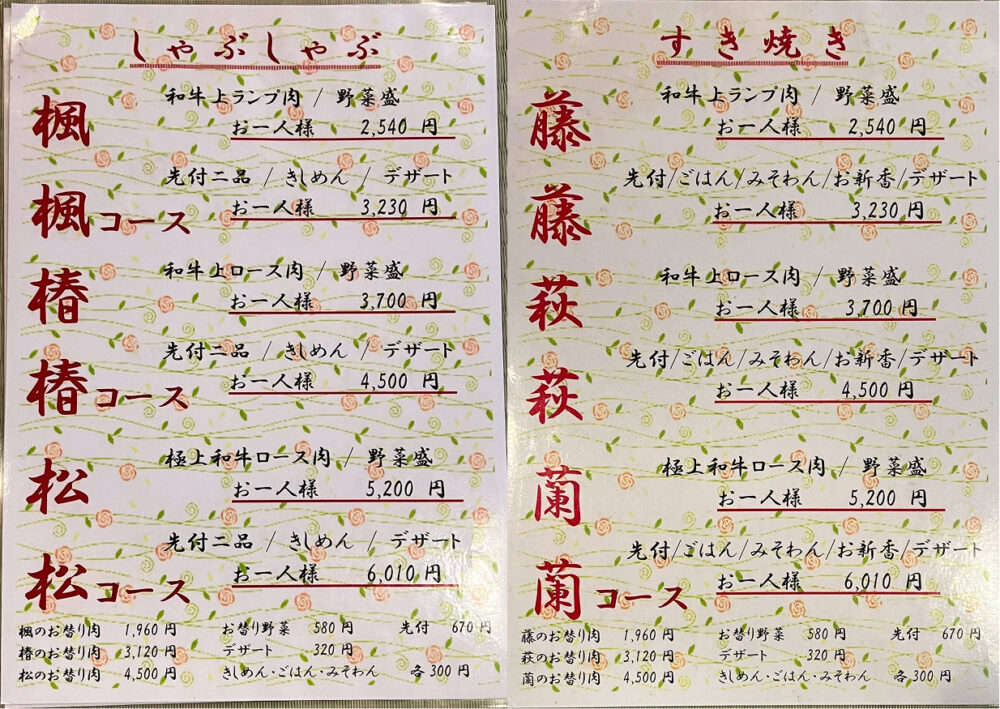 しゃぶしゃぶ
楓 和牛上ランプ肉 / 野菜盛
お一人様 2,540 円
楓コース 先付二品 / きしめん / デザート
お一人様 3,230 円
椿 和牛上ロース肉 / 野菜盛
お一人様 3,700 円
椿コース 先付二品 / きしめん / デザート
お一人様 4,500 円
松 極上和牛ロース肉 / 野菜盛
お一人様 5,200 円
松コース 先付二品 / きしめん / デザート
お一人様 6,010 円
楓のお替り肉 1,960 円 お替り野菜 580 円 先付 670 円
椿のお替り肉 3,120 円 デザート 320 円
松のお替り肉 4,500 円 きしめん・ごはん・みそわん 各 300 円
すき焼き
藤 和牛上ランプ肉 / 野菜盛
お一人様 2,540 円
藤 先付/ごはん/みそわん/お新香/デザート
お一人様 3,230 円
萩 和牛上ロース肉 / 野菜盛
お一人様 3,700 円
萩 先付/ごはん/みそわん/お新香/デザート
お一人様 4,500 円
蘭 極上和牛ロース肉 / 野菜盛
お一人様 5,200 円
蘭コース 先付/ごはん/みそわん/お新香/デザート
お一人様 6,010 円
藤のお替り肉 1,960 円 お替り野菜 580 円 先付 670 円
萩のお替り肉 3,120 円 デザート 320 円
蘭のお替り肉 4,500 円 きしめん・ごはん・みそわん 各 300 円